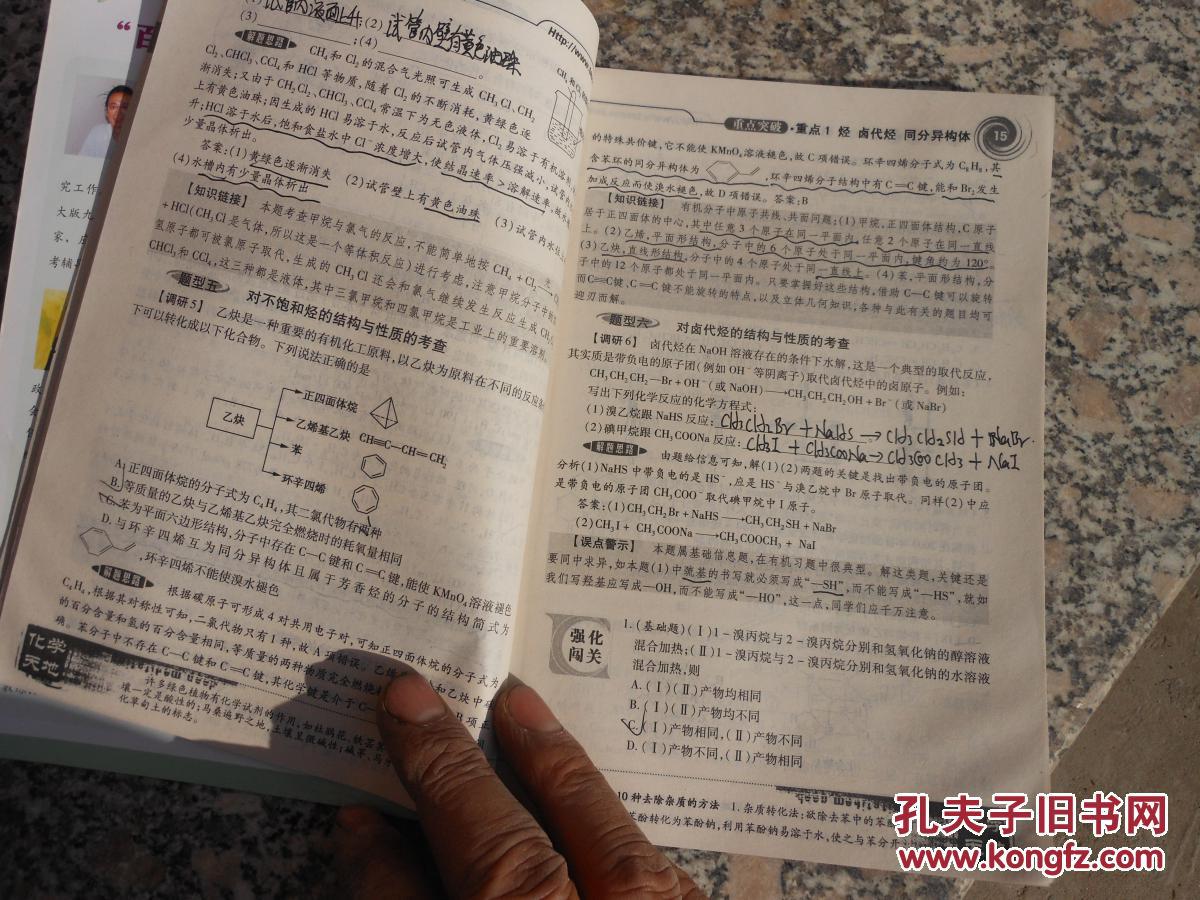 (1)试管内液面上升;(2)试管内壁有黄色油珠
(3) ;(4) 。
解题思路 CH₄和Cl₂的混合气光照可生成CH₃Cl、CH₂
Cl₂、CHCl₃、CCl₄和HCl等物质,随着Cl₂的不断消耗,黄绿色逐
渐消失;又由于CH₂Cl₂、CHCl₃、CCl₄常温下为无色液体,Cl₂易溶于有机溶剂
上有黄色油珠;因生成的HCl易溶于水,反应后试管内气体压强减小,试管内
升;HCl溶于水后,饱和食盐水中Cl⁻浓度增大,使结晶速率>溶解速率,故水
少量晶体析出。
答案:(1)黄绿色逐渐消失 (2)试管壁上有黄色油珠 (3)试管内水位上
(4)水槽内有少量晶体析出
【知识链接】 本题考查甲烷与氯气的反应,不能简单地按CH₄+Cl₂ 光
+HCl(CH₃Cl是气体,所以这是一个等体积反应)进行考虑,注意甲烷分子中的
氢原子都可被氯原子取代,生成的CH₃Cl还会和氯气继续发生反应生成CH₂
CHCl₃和CCl₄,这三种都是液体,其中三氯甲烷和四氯甲烷是工业上的重要溶剂。
题型五 对不饱和烃的结构与性质的考查
【调研5】 乙炔是一种重要的有机化工原料,以乙炔为原料在不同的反应条
下可以转化成以下化合物。下列说法正确的是
乙炔
正四面体烷
乙烯基乙炔 CH≡C—CH=CH₂
苯
环辛四烯
A.正四面体烷的分子式为C₄H₄,其二氯代物有两种
B.等质量的乙炔与乙烯基乙炔完全燃烧时的耗氧量相同
C.苯为平面六边形结构,分子中存在C—C键和C=C键,能使KMnO₄溶液褪色
D.与环辛四烯互为同分异构体且属于芳香烃的分子的结构简式为
,环辛四烯不能使溴水褪色
解题思路 根据碳原子可形成4对共用电子对,可知正四面体烷的分子式为
C₄H₄,根据其对称性可知,二氯代物只有1种,故A项错误。乙烯 和乙炔中碳
的百分含量和氢的百分含量相同,等质量的两种物质完全燃烧 B项正
确。苯分子中不存在C—C键和C=C键,其化学键是介于C—
化学天地
许多绿色植物有化学试剂的作用,如杜鹃花、铁芒萁
壤一定是酸性的;马桑遍野之地,土壤呈微碱性;碱茅、马
化草甸土的标志。
Http://www.
重点突破·重点1 烃 卤代烃 同分异构体 15
的特殊共价键,它不能使KMnO₄溶液褪色,故C项错误。环辛四烯分子式为C₈H₈,其
含苯环的同分异构体为 ,环辛四烯分子结构中有C=C键,能和Br₂发生
加成反应而使溴水褪色,故D项错误。答案:B
【知识链接】 有机分子中原子共线、共面问题:(1)甲烷,正四面体结构,C原子
居于正四面体的中心,其中任意3个原子在同一平面内,任意2个原子在同一直线
上。(2)乙烯,平面形结构,分子中的6个原子处于同一平面内,键角约为120°。
(3)乙炔,直线形结构,分子中的4个原子处于同一直线上。(4)苯,平面形结构,分
子中的12个原子都处于同一平面内。只要掌握好这些结构,借助C—C键可以旋转
而C=C键、C≡C键不能旋转的特点,以及立体几何知识,各种与此有关的题目均可
迎刃而解。
题型六 对卤代烃的结构与性质的考查
【调研6】 卤代烃在NaOH溶液存在的条件下水解,这是一个典型的取代反应,
其实质是带负电的原子团(例如OH⁻等阴离子)取代卤代烃中的卤原子。例如:
CH₃CH₂CH₂—Br+OH⁻(或NaOH)⟶CH₃CH₂CH₂OH+Br⁻(或NaBr)
写出下列化学反应的化学方程式:
(1)溴乙烷跟NaHS反应:CH₃CH₂Br+NaHS→CH₃CH₂SH+NaBr.
(2)碘甲烷跟CH₃COONa反应:CH₃I+CH₃COONa→CH₃COOCH₃+NaI
解题思路 由题给信息可知,解(1)(2)两题的关键是找出带负电的原子团。
分析(1)NaHS中带负电的是HS⁻,应是HS⁻与溴乙烷中Br原子取代。同样(2)中应
是带负电的原子团CH₃COO⁻取代碘甲烷中I原子。
答案:(1)CH₃CH₂Br+NaHS⟶CH₃CH₂SH+NaBr
(2)CH₃I+CH₃COONa⟶CH₃COOCH₃+NaI
【误点警示】 本题属基础信息题,在有机习题中很典型。解这类题,关键还是
要同中求异,如本题(1)中巯基的书写就必须写成“—SH”,而不能写成“—HS”,就如
我们写羟基应写成—OH,而不能写成“—HO”,这一点,同学们应千万注意。
强化闯关
1.(基础题)(Ⅰ)1-溴丙烷与2-溴丙烷分别和氢氧化钠的醇溶液
混合加热;(Ⅱ)1-溴丙烷与2-溴丙烷分别和氢氧化钠的水溶液
混合加热,则
A.(Ⅰ)(Ⅱ)产物均相同
B.(Ⅰ)(Ⅱ)产物均不同
C.(Ⅰ)产物相同,(Ⅱ)产物不同
D.(Ⅰ)产物不同,(Ⅱ)产物相同
10种去除杂质的方法 1.杂质转化法:欲除去苯中的苯酚
苯酚转化为苯酚钠,利用苯酚钠易溶于水,使之与苯分开
孔夫子旧书网
www.kongfz.com